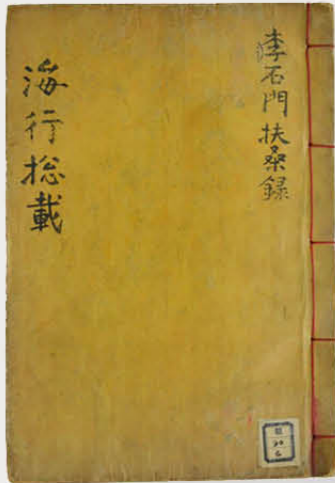 李石門扶桑録
海行捴載